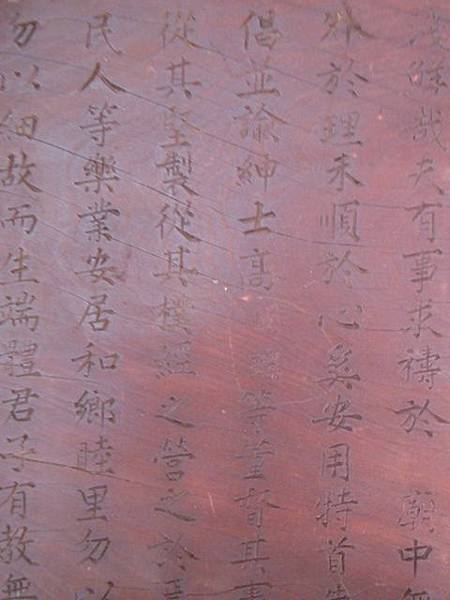 淺鮮哉夫有事求禱於 廟中無
外於理未順於心奚安用特首先
倡並諭紳士高等董督其事
從其堅製從其樸經之營之於
民人等樂業安居和鄉睦里勿以
勿以細故而生端體君子有教無